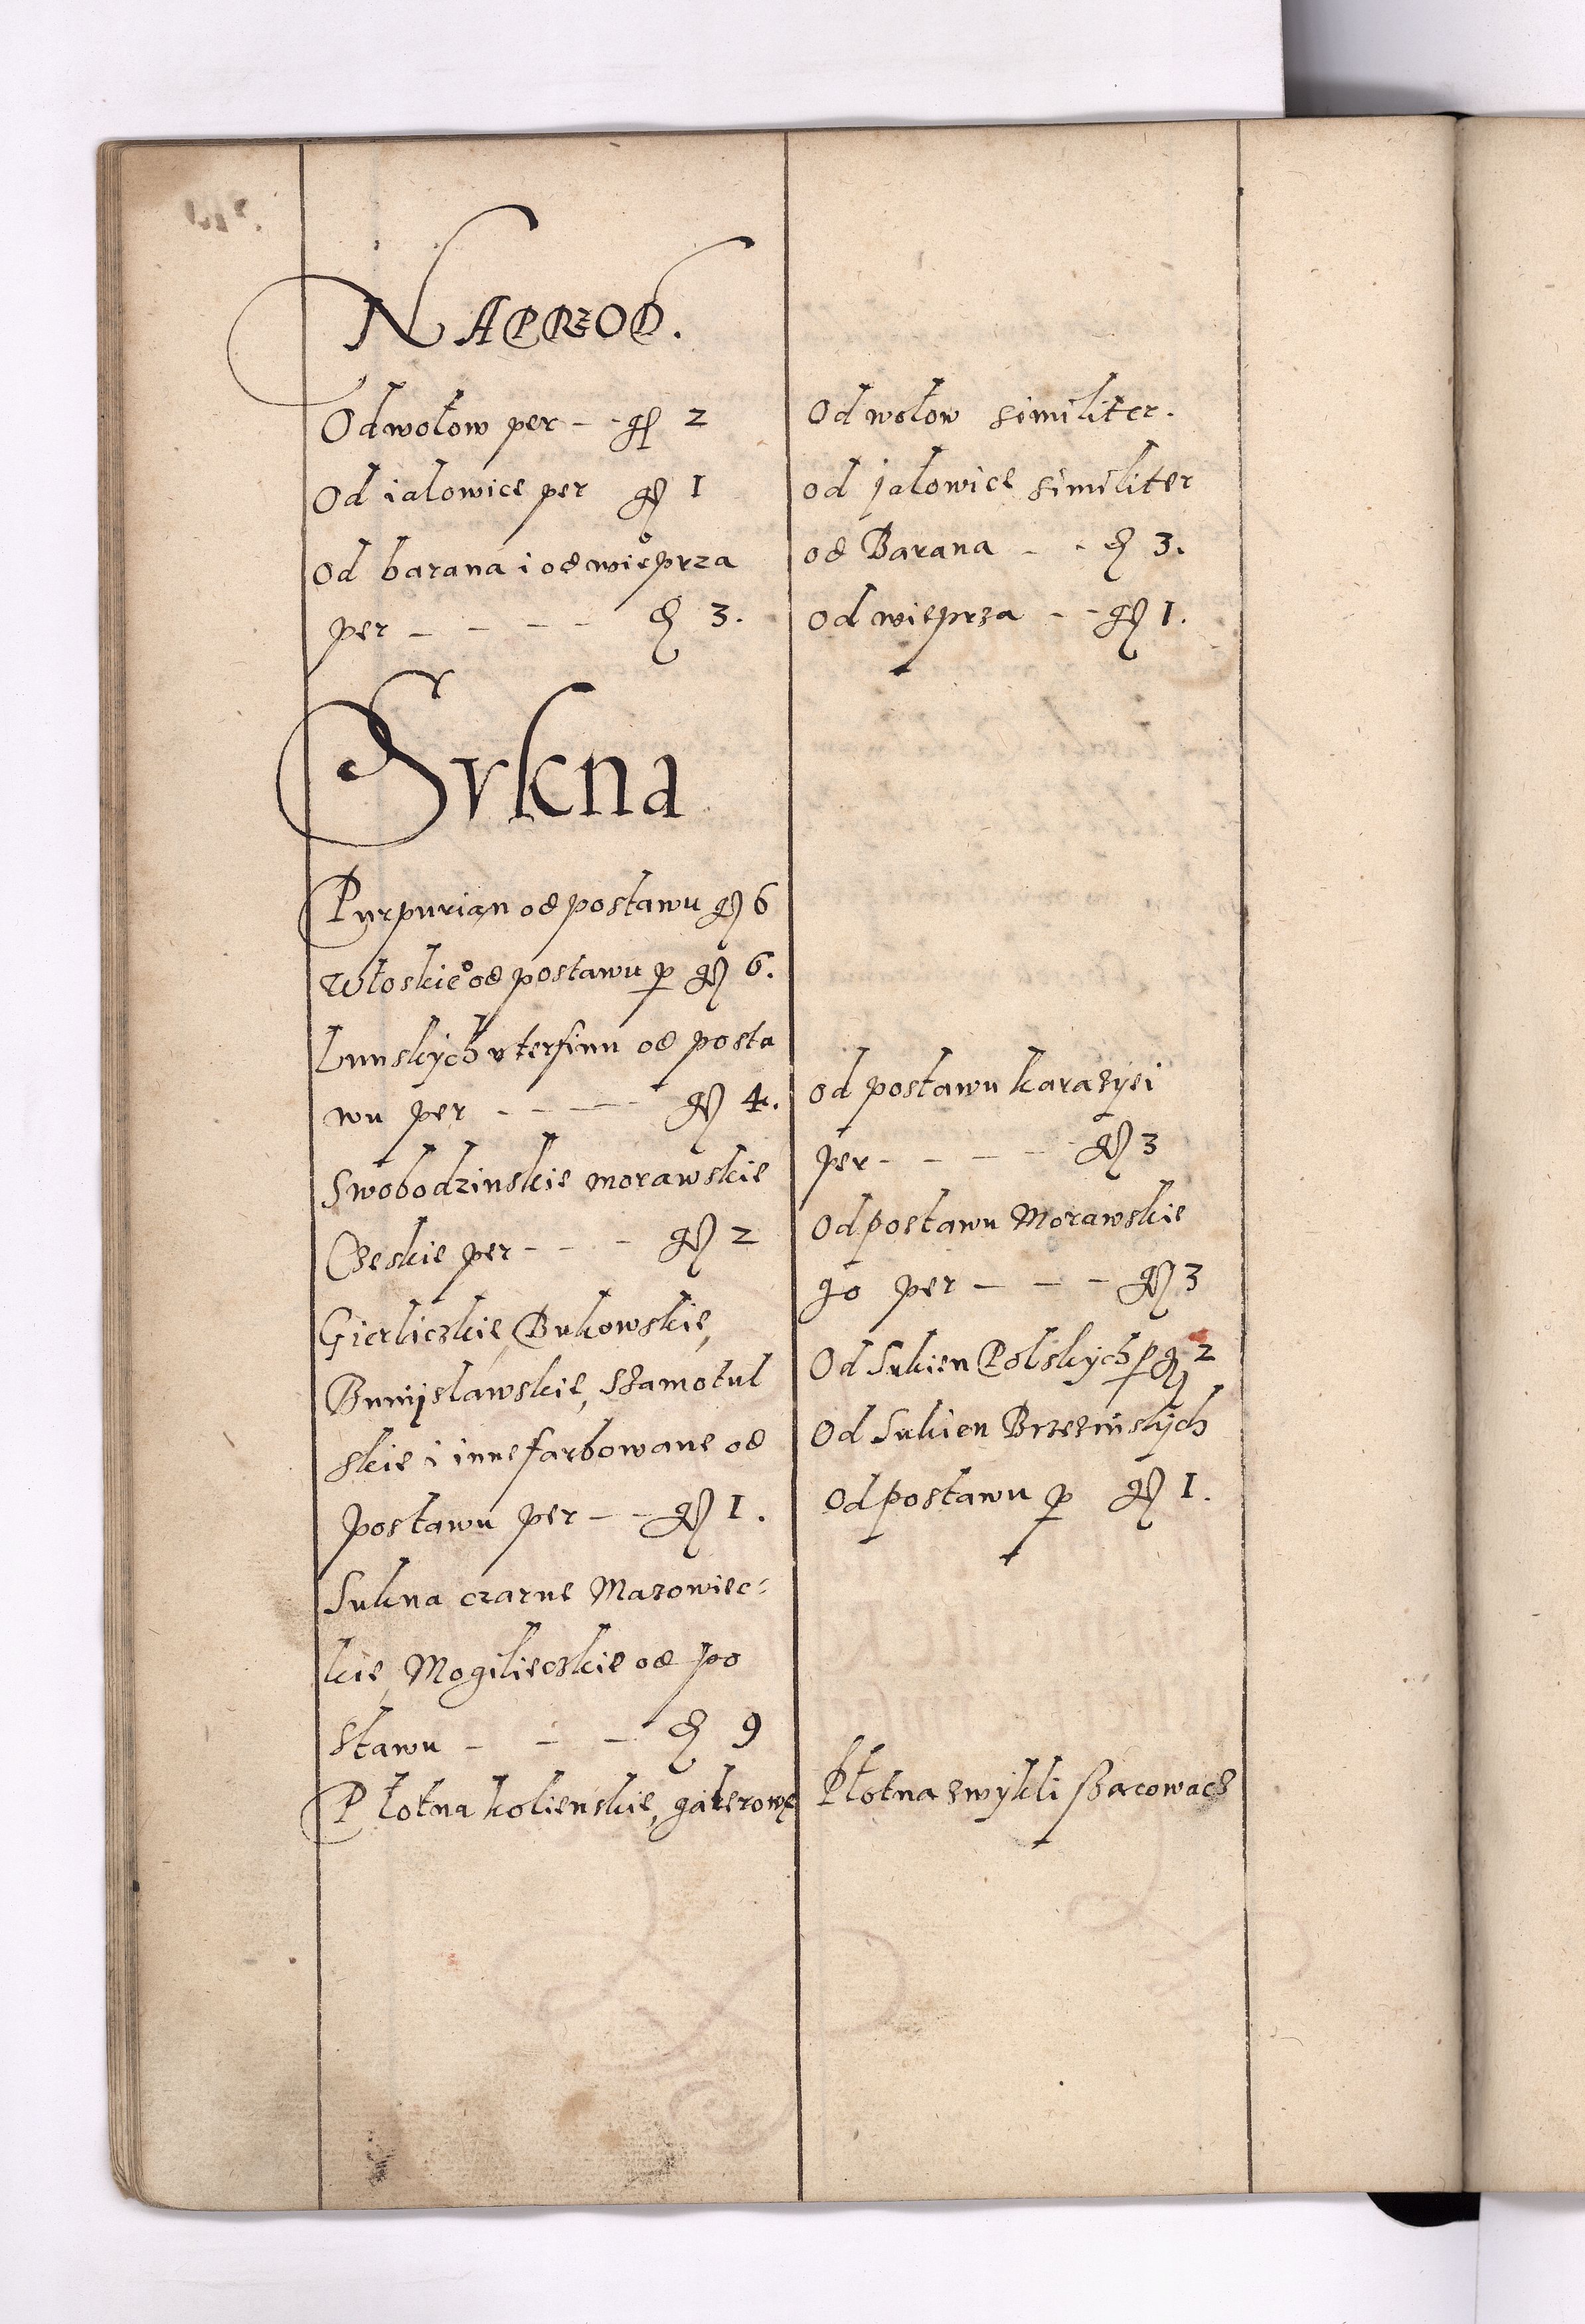 NAPRzOD.
Od wołow per - - gr 2
Od ialowice per gr 1
Od barana i od wieprza
per - - - - d 3.
Svkna
Purpurian od postawu gr 6
Włoskie od postawu p gr 6.
Lunskych vterfinu od posta
wu per - - - - gr 4.
Swobodzinskie morawskie
Czeskie per - - - gr 2
Gierliczkie, Bukowskie,
Bunijslawskie, Szamotul
skie i inne farbowane od
postawu per - - gr 1.
Sukna czarne Mazowiec-
kie, Mogilieczkie od po
stawu - - - d 9
Płotna kolienskie,
Od wołow similiter.
od jalowice similiter
od Barana - - d 3.
Od wieprza - - gr 1.
od postawu karazyei
per - - - - gr 3
Od postawu Morawskie
go per - - - gr 3
Od Sukien Polskych p gr 2
Od Sukien Brzezinskych
od postawu p gr 1.
Płotna zwykli szacowacz